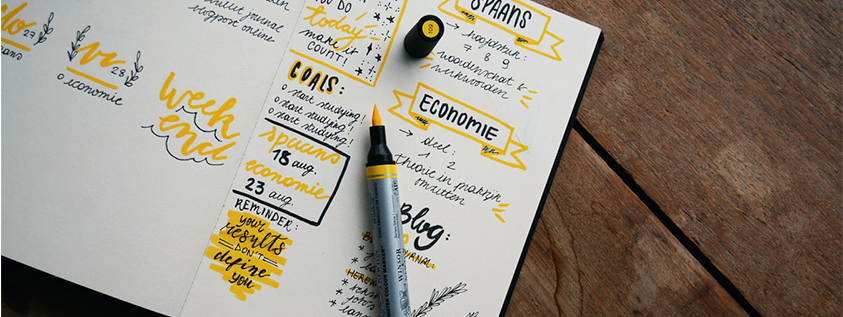 27
vr
28
o economic
Week
end
bullet journal
blogpost online
YOU DO
today
make it
COUNT!
GOALS:
o start studying!
o start studying!
o start studying!
spaans
18 aug.
economie
23 aug.
REMINDER:
your
results
DON'T
define
you
109
SPAANS
→ hoofdstuk:
7 8 9
woordenschat &
werkwoorden
ECONOMIE
→ deel:
1 2
theorie in praktijk
omzetten
Blog:
WINSOR